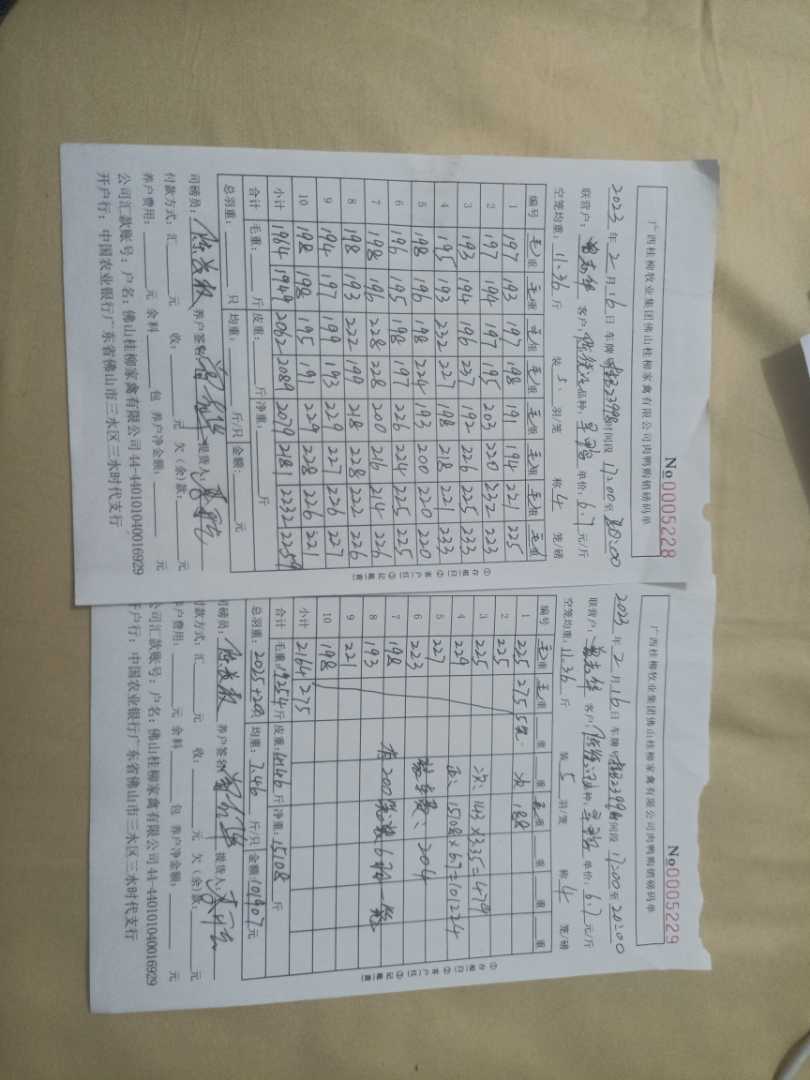 广西桂柳牧业集团佛山桂柳家禽有限公司肉鸭购销磅码单
No 0005228
2023 年 2 月 16 日 车牌 时间段 17:00 至 20:00
联营户: 客户: 品种: 单价: 6.7 元/斤
空笼均重: 11.36 斤 装 5 羽/笼 称 4 笼/磅
编号 毛重 毛重 毛重 毛重 毛重 毛重 毛重 毛重
1 197 193 197 198 191 194 221 225
2 197 194 197 195 203 220 232 223
3 193 194 196 227 192 226 225 233
4 195 193 232 227 198 218 221 233
5 198 196 198 224 193 200 220 220
6 196 195 198 197 226 224 225 225
7 198 196 228 228 200 216 214 226
8 198 193 222 199 218 228 222 226
9 194 197 199 193 229 227 226 227
10 198 198 195 191 229 228 226 221
小计 1964 1949 2062 2089 2079 2181 2232 2259
合计 毛重: 斤 皮重: 斤 净重: 斤
总羽重: 只 均重: 斤/只 金额: 元
司磅员: 养户签名: 提货人:
付款方式: 汇 元 收: 元 欠(余)款: 元
养户费用: 元 余料 包 养户净金额: 元
公司汇款账号: 户名: 佛山桂柳家禽有限公司 44-440101040016929
开户行: 中国农业银行广东省佛山市三水区三水时代支行
①存根(白) ②客户(红) ③记账(黄)
广西桂柳牧业集团佛山桂柳家禽有限公司肉鸭购销磅码单
No 0005229
2023 年 2 月 16 日 车牌 时间段 17:00 至 20:00
联营户: 客户: 品种: 单价: 6.7 元/斤
空笼均重: 11.36 斤 装 5 羽/笼 称 4 笼/磅
编号 毛重 毛重 重 重 毛重 重 重 重
1 225 275 5笼 次 188
2 225
3 225 次: 143×3.35=479
4 229 正: 15108×6.7=101224
5 227
6 223 204
7 198
8 193
9 221
10 198
小计 2164 275
合计 毛重: 19254 斤 皮重: 4146 斤 净重: 15108 斤
总羽重: 均重: 7.46 斤/只 金额: 101907 元
司磅员: 养户签名: 提货人:
付款方式: 汇 元 收: 元 欠(余)款: 元
户费用: 元 余料 包 养户净金额: 元
公司汇款账号: 户名: 佛山桂柳家禽有限公司 44-440101040016929
开户行: 中国农业银行广东省佛山市三水区三水时代支行
①存根(白) ②客户(红) ③记账(黄)